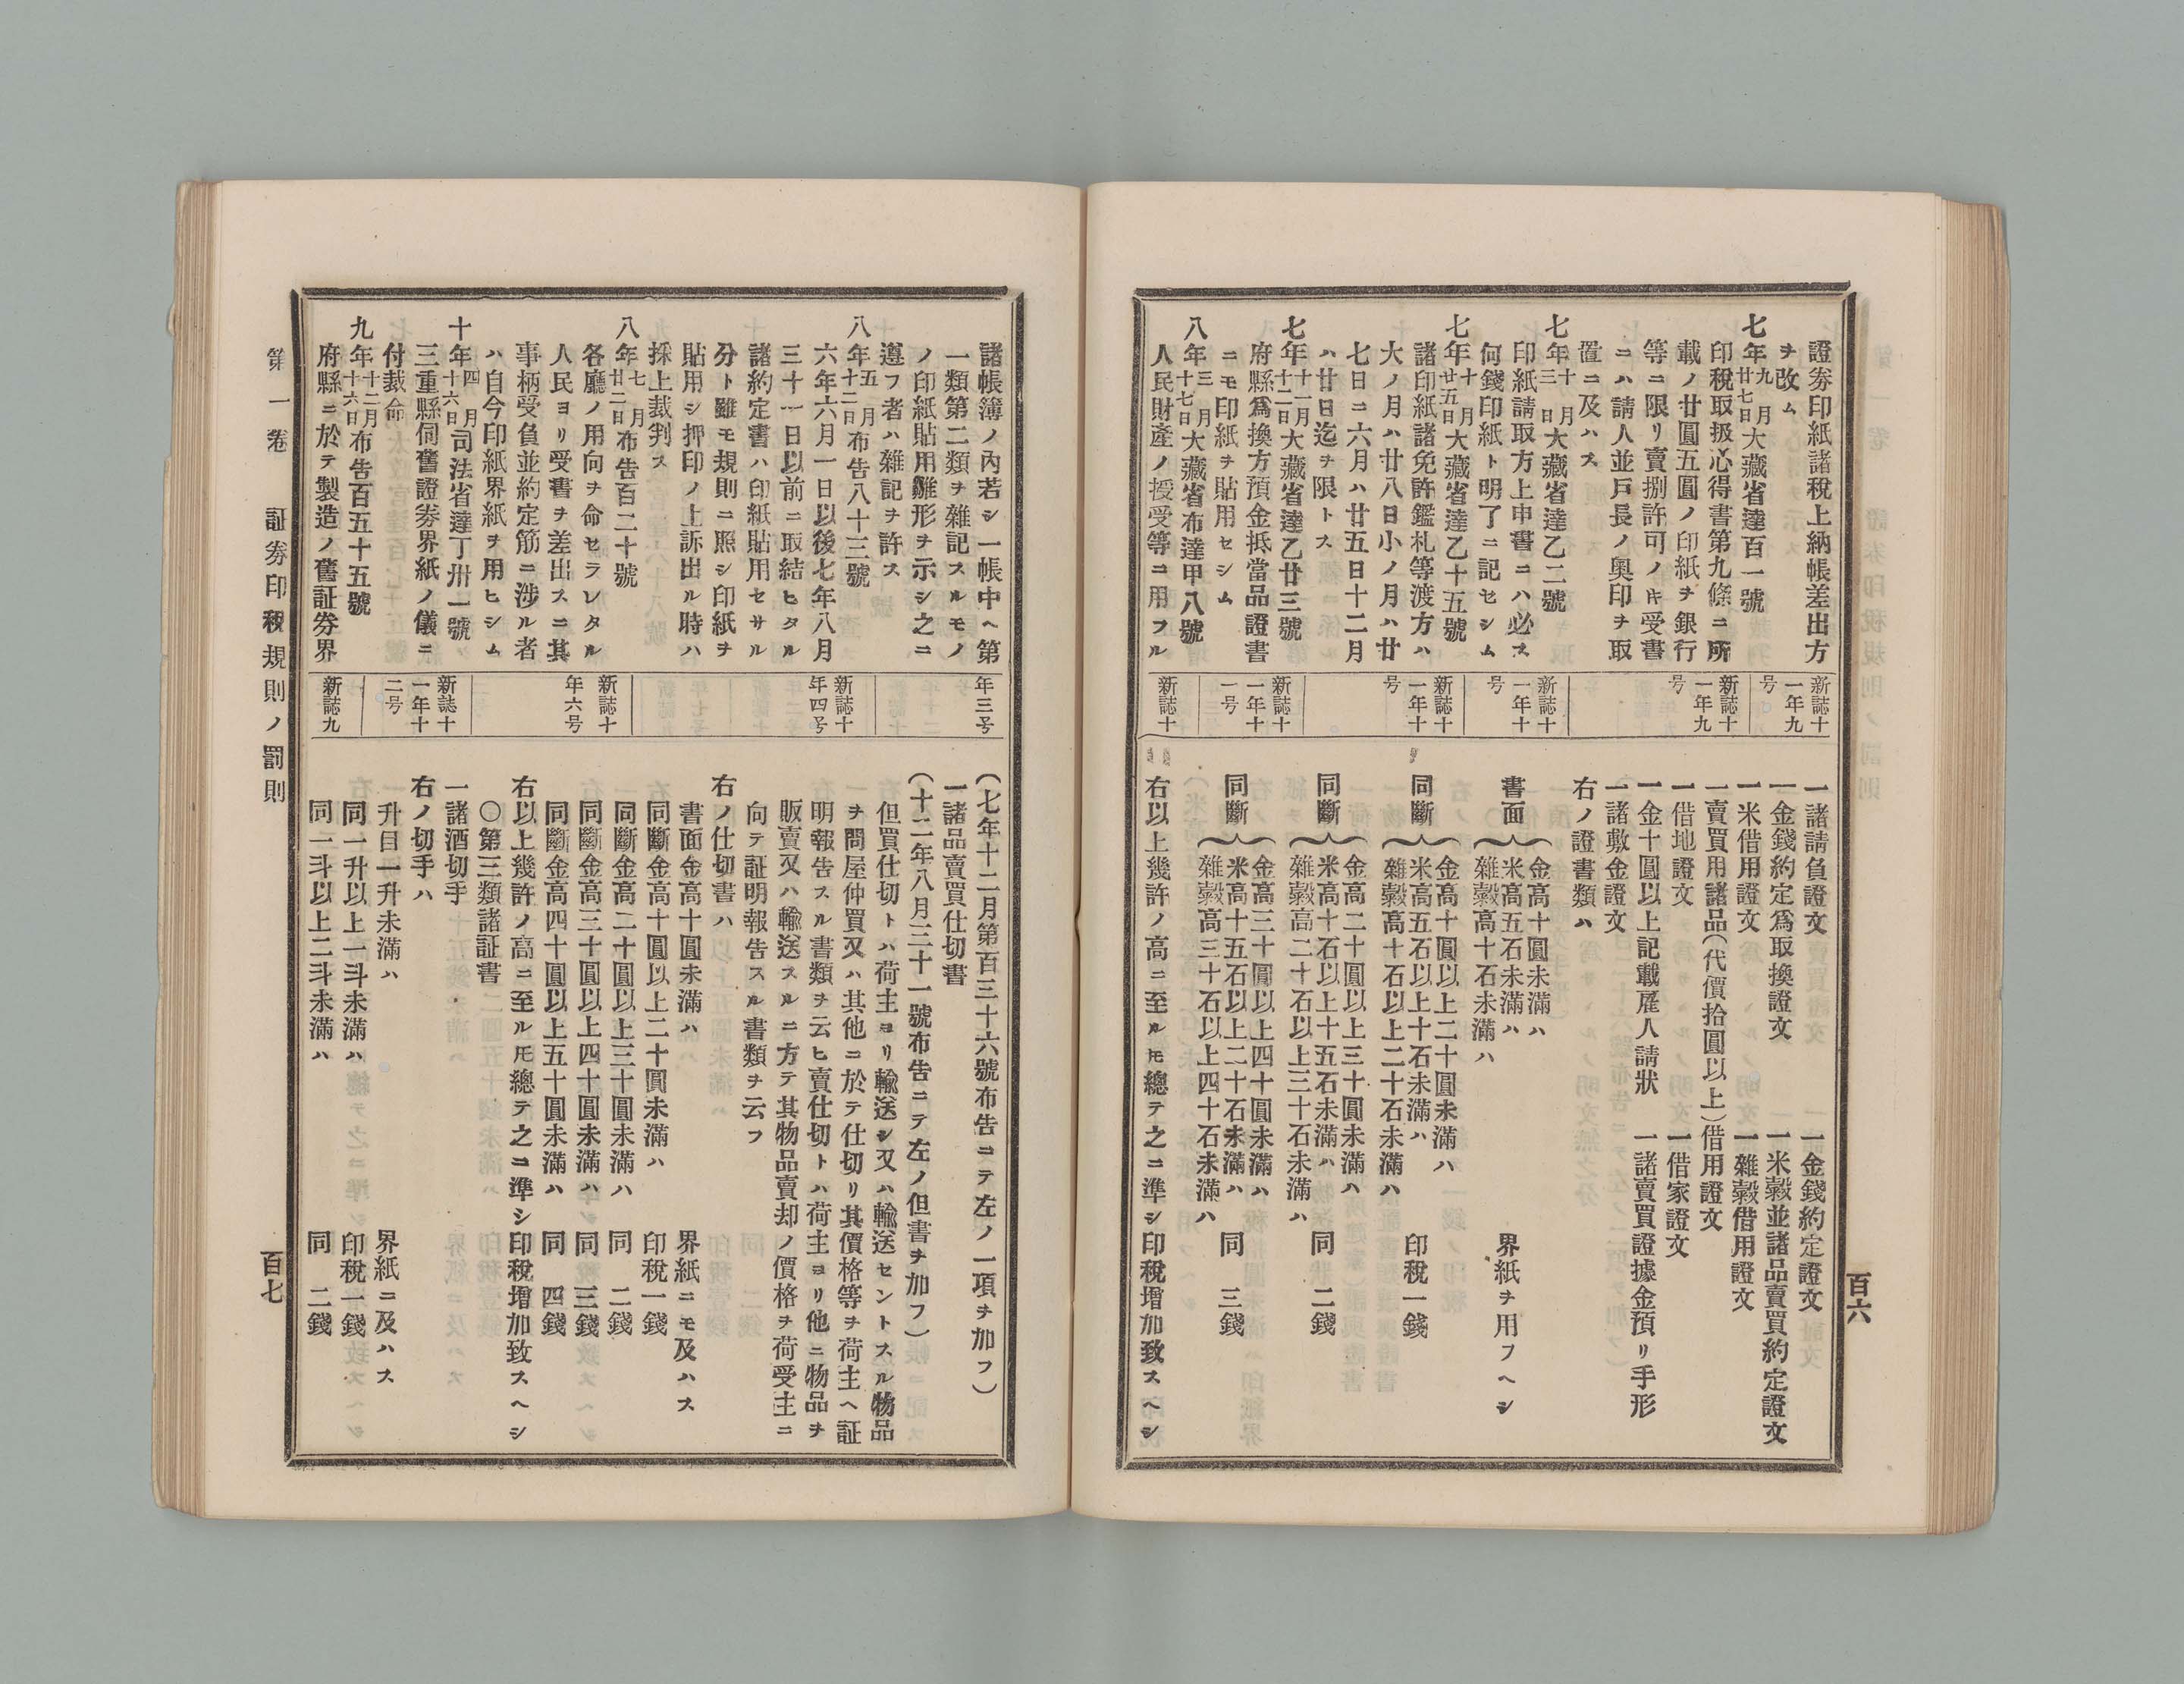 證劵印紙諸稅上納帳差出方
ヲ改ム
七年九月廿七日大藏省達百一號
印稅取扱心得書第九條ニ所
載ノ廿圓五圓ノ印紙ヲ銀行
等ニ限リ賣捌許可ノ𪜈受書
ニハ請人並戶長ノ奧印ヲ取
置ニ及ハス
七年十月三日大藏省達乙二號
印紙請取方上申書ニハ必ス
何錢印紙ト明了ニ記セシム
七年十月廿五日大藏省達乙十五號
諸印紙諸免許鑑札等渡方ハ
大ノ月ハ廿八日小ノ月ハ廿
七日ニ六月ハ廿五日十二月
ハ廿日迄ヲ限トス
七年十一月十二日大藏省達乙廿三號
府縣爲換方預金抵當品證書
ニモ印紙ヲ貼用セシム
八年三月十七日大藏省布達甲八號
人民財產ノ授受等ニ用フル
新誌十
一年九
号
新誌十
一年九
号
新誌十
一年十
号
新誌十
一年十
号
新誌十
一年十
一号
新誌十
一諸請負證文　一金錢約定證文
一金錢約定爲取換證文　一米穀並諸品賣買約定證文
一米借用證文　一雜穀借用證文
一賣買用諸品(代價拾圓以上)借用證文
一借地證文　一借家證文
一金十圓以上記載雇人請狀　一諸賣買證據金預リ手形
一諸敷金證文
右ノ證書類ハ
書面
金高十圓未滿ハ
米高五石未滿ハ
雜穀高十石未滿ハ
界紙ヲ用フヘシ
同斷
金高十圓以上二十圓未滿ハ
米高五石以上十石未滿ハ
雜穀高十石以上二十石未滿ハ
印稅一錢
同斷
金高二十圓以上三十圓未滿ハ
米高十石以上十五石未滿ハ
雜穀高二十石以上三十石未滿ハ
同　二錢
同斷
金高三十圓以上四十圓未滿ハ
米高十五石以上二十石未滿ハ
雜穀高三十石以上四十石未滿ハ
同　三錢
右以上幾許ノ高ニ至ルモ總テ之ニ準シ印稅增加致スヘシ
百六
諸帳簿ノ內若シ一帳中ヘ第
一類第二類ヲ雜記スルモノ
ノ印紙貼用雛形ヲ示シ之ニ
遵フ者ハ雜記ヲ許ス
八年五月十二日布告八十三號
六年六月一日以後七年八月
三十一日以前ニ取結ヒタル
諸約定書ハ印紙貼用セサル
分ト雖モ規則ニ照シ印紙ヲ
貼用シ押印ノ上訴出ル時ハ
採上裁判ス
八年七月廿二日布告百二十號
各廳ノ用向ヲ命セラレタル
人民ヨリ受書ヲ差出スニ其
事柄受負並約定筋ニ涉ル者
ハ自今印紙界紙ヲ用ヒシム
十年四月十六日司法省達丁卅一號
三重縣伺舊證劵界紙ノ儀ニ
付裁命
九年十二月十六日布告百五十五號
府縣ニ於テ製造ノ舊証劵界
年三号
新誌十
年四号
新誌十
年六号
新誌十
一年十
二号
新誌九
(七年十二月第百三十六號布告ニテ左ノ一項ヲ加フ)
一諸品賣買仕切書
(十二年八月三十一號布告ニテ左ノ但書ヲ加フ)
但買仕切トハ荷主ヨリ輸送シ又ハ輸送セントスル物品
ヲ問屋仲買又ハ其他ニ於テ仕切リ其價格等ヲ荷主ヘ証
明報告スル書類ヲ云ヒ賣仕切トハ荷主ヨリ他ニ物品ヲ
販賣又ハ輸送スルニ方テ其物品賣却ノ價格ヲ荷受主ニ
向テ証明報告スル書類ヲ云フ
右ノ仕切書ハ
書面金高十圓未滿ハ　界紙ニモ及ハス
同斷金高十圓以上二十圓未滿ハ　印稅一錢
同斷金高二十圓以上三十圓未滿ハ　同　二錢
同斷金高三十圓以上四十圓未滿ハ　同　三錢
同斷金高四十圓以上五十圓未滿ハ　同　四錢
右以上幾許ノ高ニ至ルモ總テ之ニ準シ印稅增加致スヘシ
〇第三類諸証書
一諸酒切手
右ノ切手ハ
升目一升未滿ハ　界紙ニ及ハス
同一升以上一斗未滿ハ　印稅一錢
同一斗以上二斗未滿ハ　同　二錢
第一卷　証劵印稅規則ノ罰則
百七